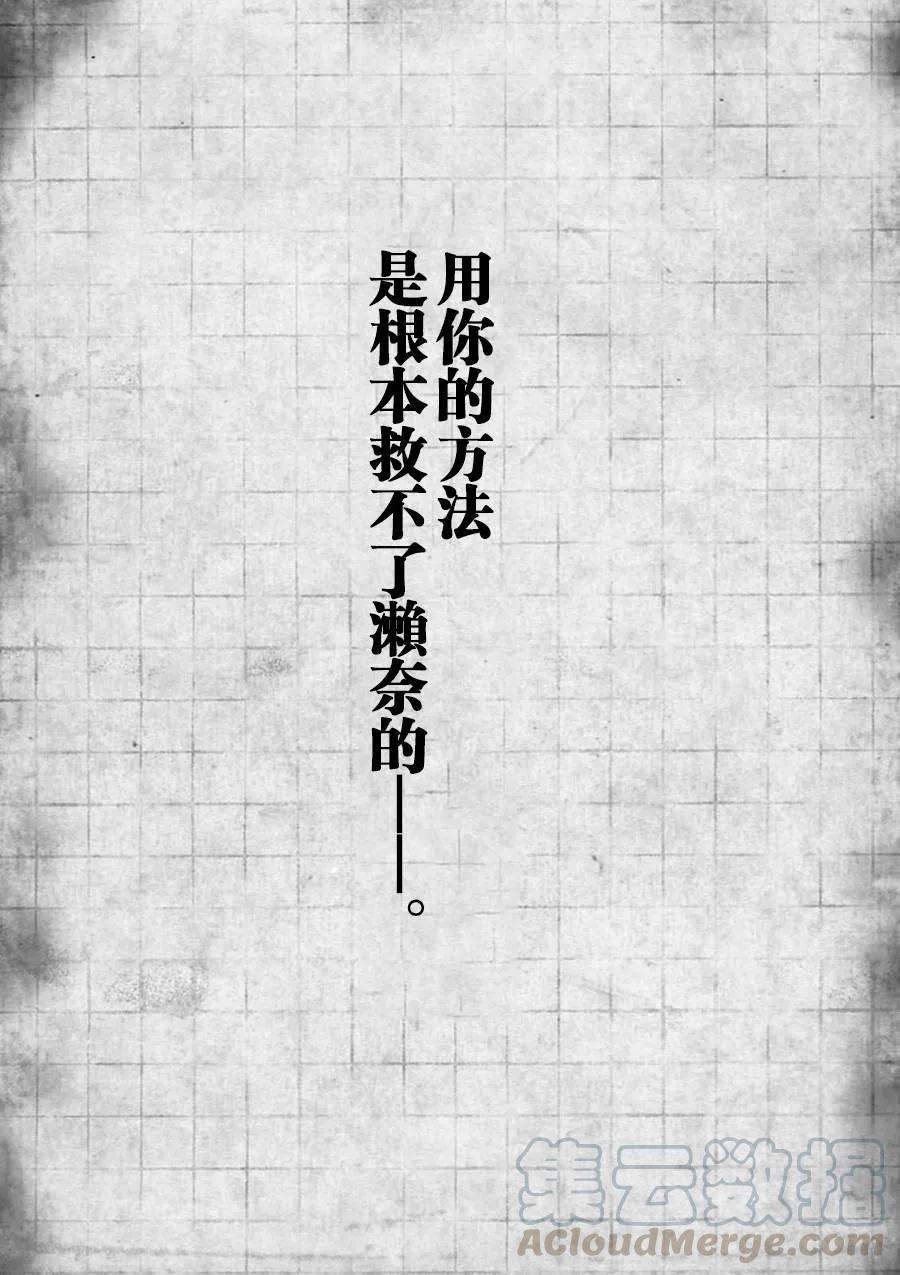 用你的方法
是根本救不了瀨奈的——。
集云数据
ACloudMerge.com